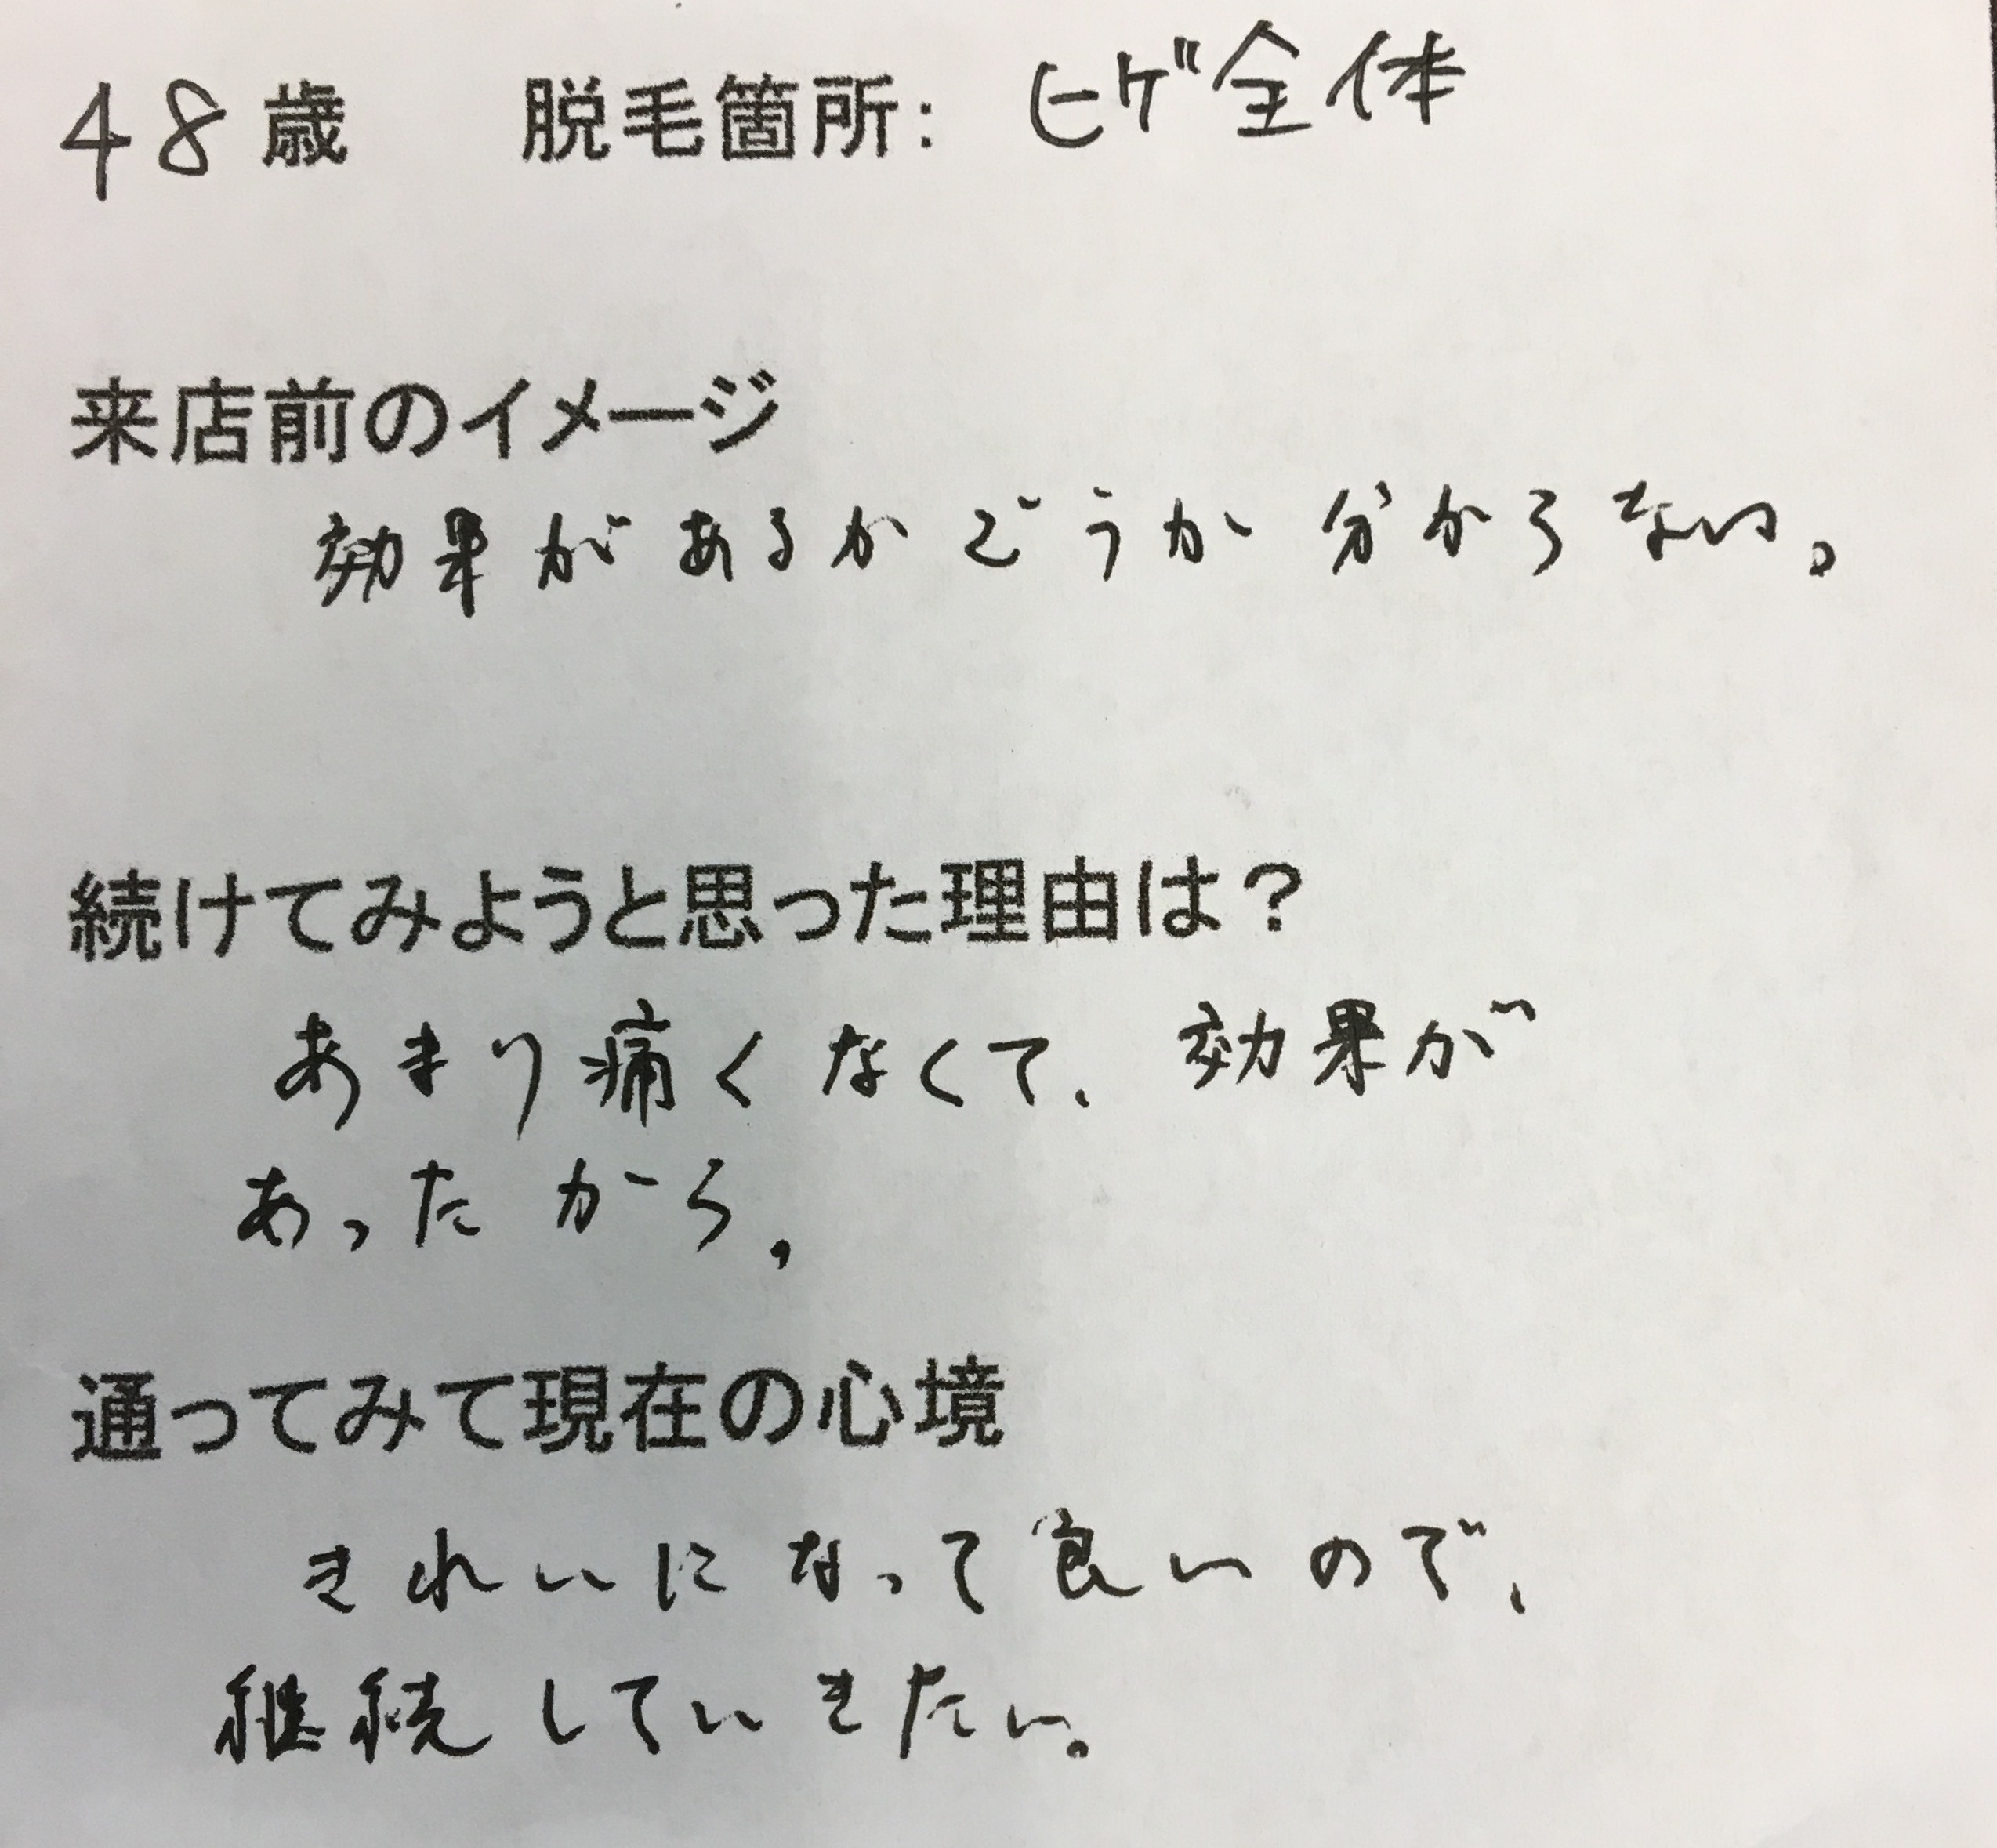 48歳 脱毛箇所: ヒゲ全体
来店前のイメージ
効果があるかどうか分からない。
続けてみようと思った理由は？
あまり痛くなくて、効果が
あったから。
通ってみて現在の心境
きれいになって良いので、
継続していきたい。